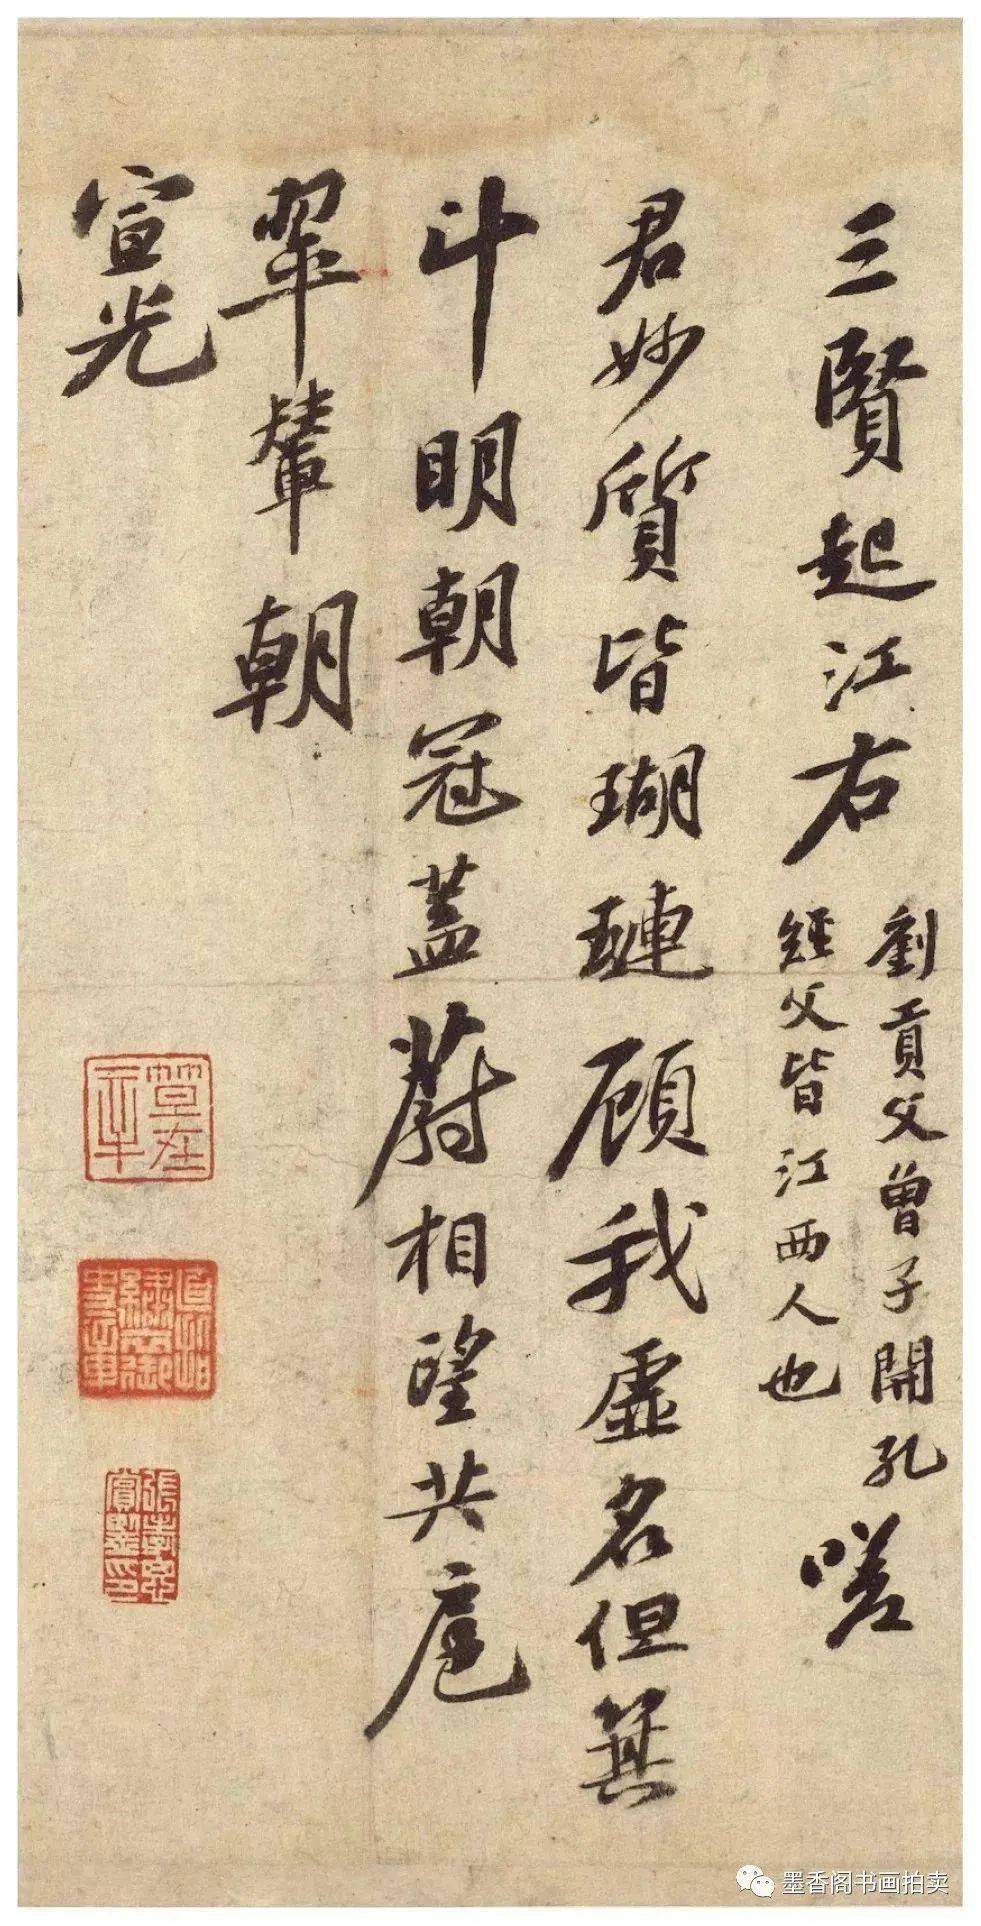 三賢起江右
劉貢父曾子開孔
經父皆江西人也
嗟
君妙質皆瑚璉顧我虛名但箕
斗明朝冠蓋蔚相望共扈
翠輦朝
宣光
墨香阁书画拍卖